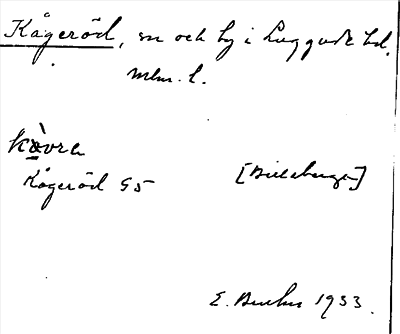 Kågeröd, sn och by i Luggude hd.
Mlm. l.
Kågeröd 95 [Billeberga]
E. 1933.